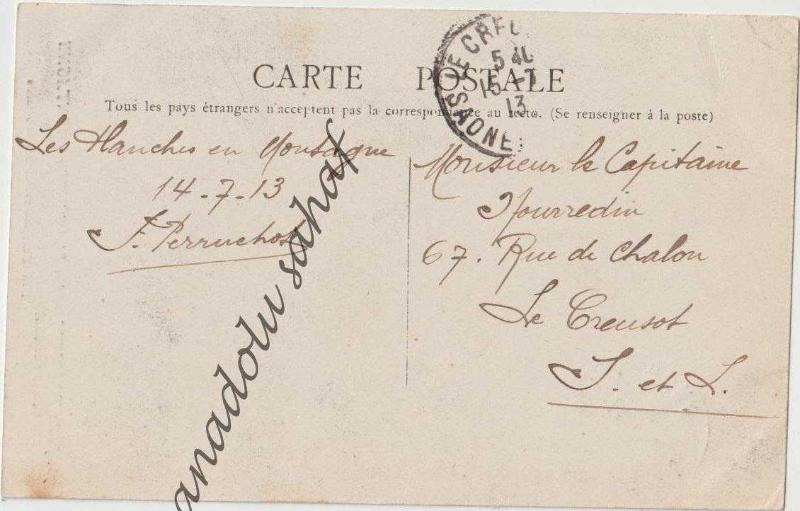 CARTE POSTALE
Tous les pays étrangers n'acceptent pas la correspondance au recto. (Se renseigner à la poste)
LE CREU
5 40
15 -7
13
S. & LOIRE
Les Planches en Montagne
14-7-13
F. Perruchot
Monsieur le Capitaine
Nourredin
67. Rue de Chalon
Le Creusot
S. et L.
anadolu sahaf